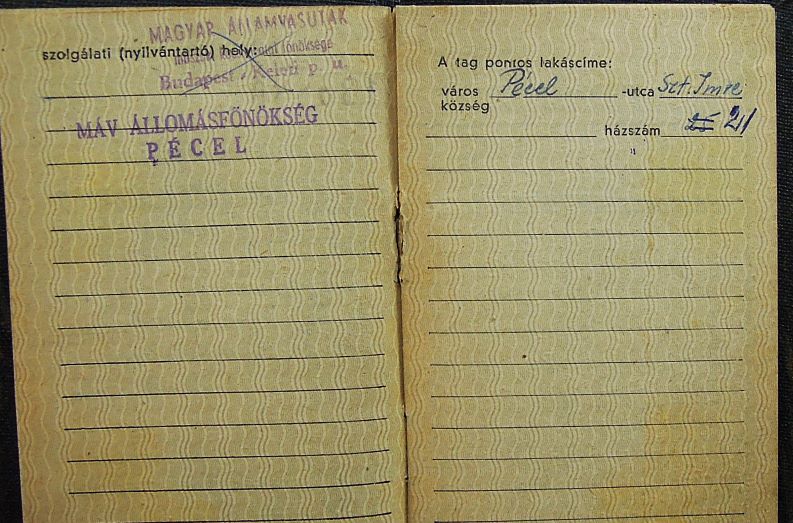 MAGYAR ÁLLAMVASUTAK
szolgálati (nyilvántartó) hely:
főnöksége
Budapest, Keleti p. u.
MÁV ÁLLOMÁSFŐNÖKSÉG
PÉCEL
A tag pontos lakáscíme:
város Pécel -utca Szt. Imre
község
házszám 21